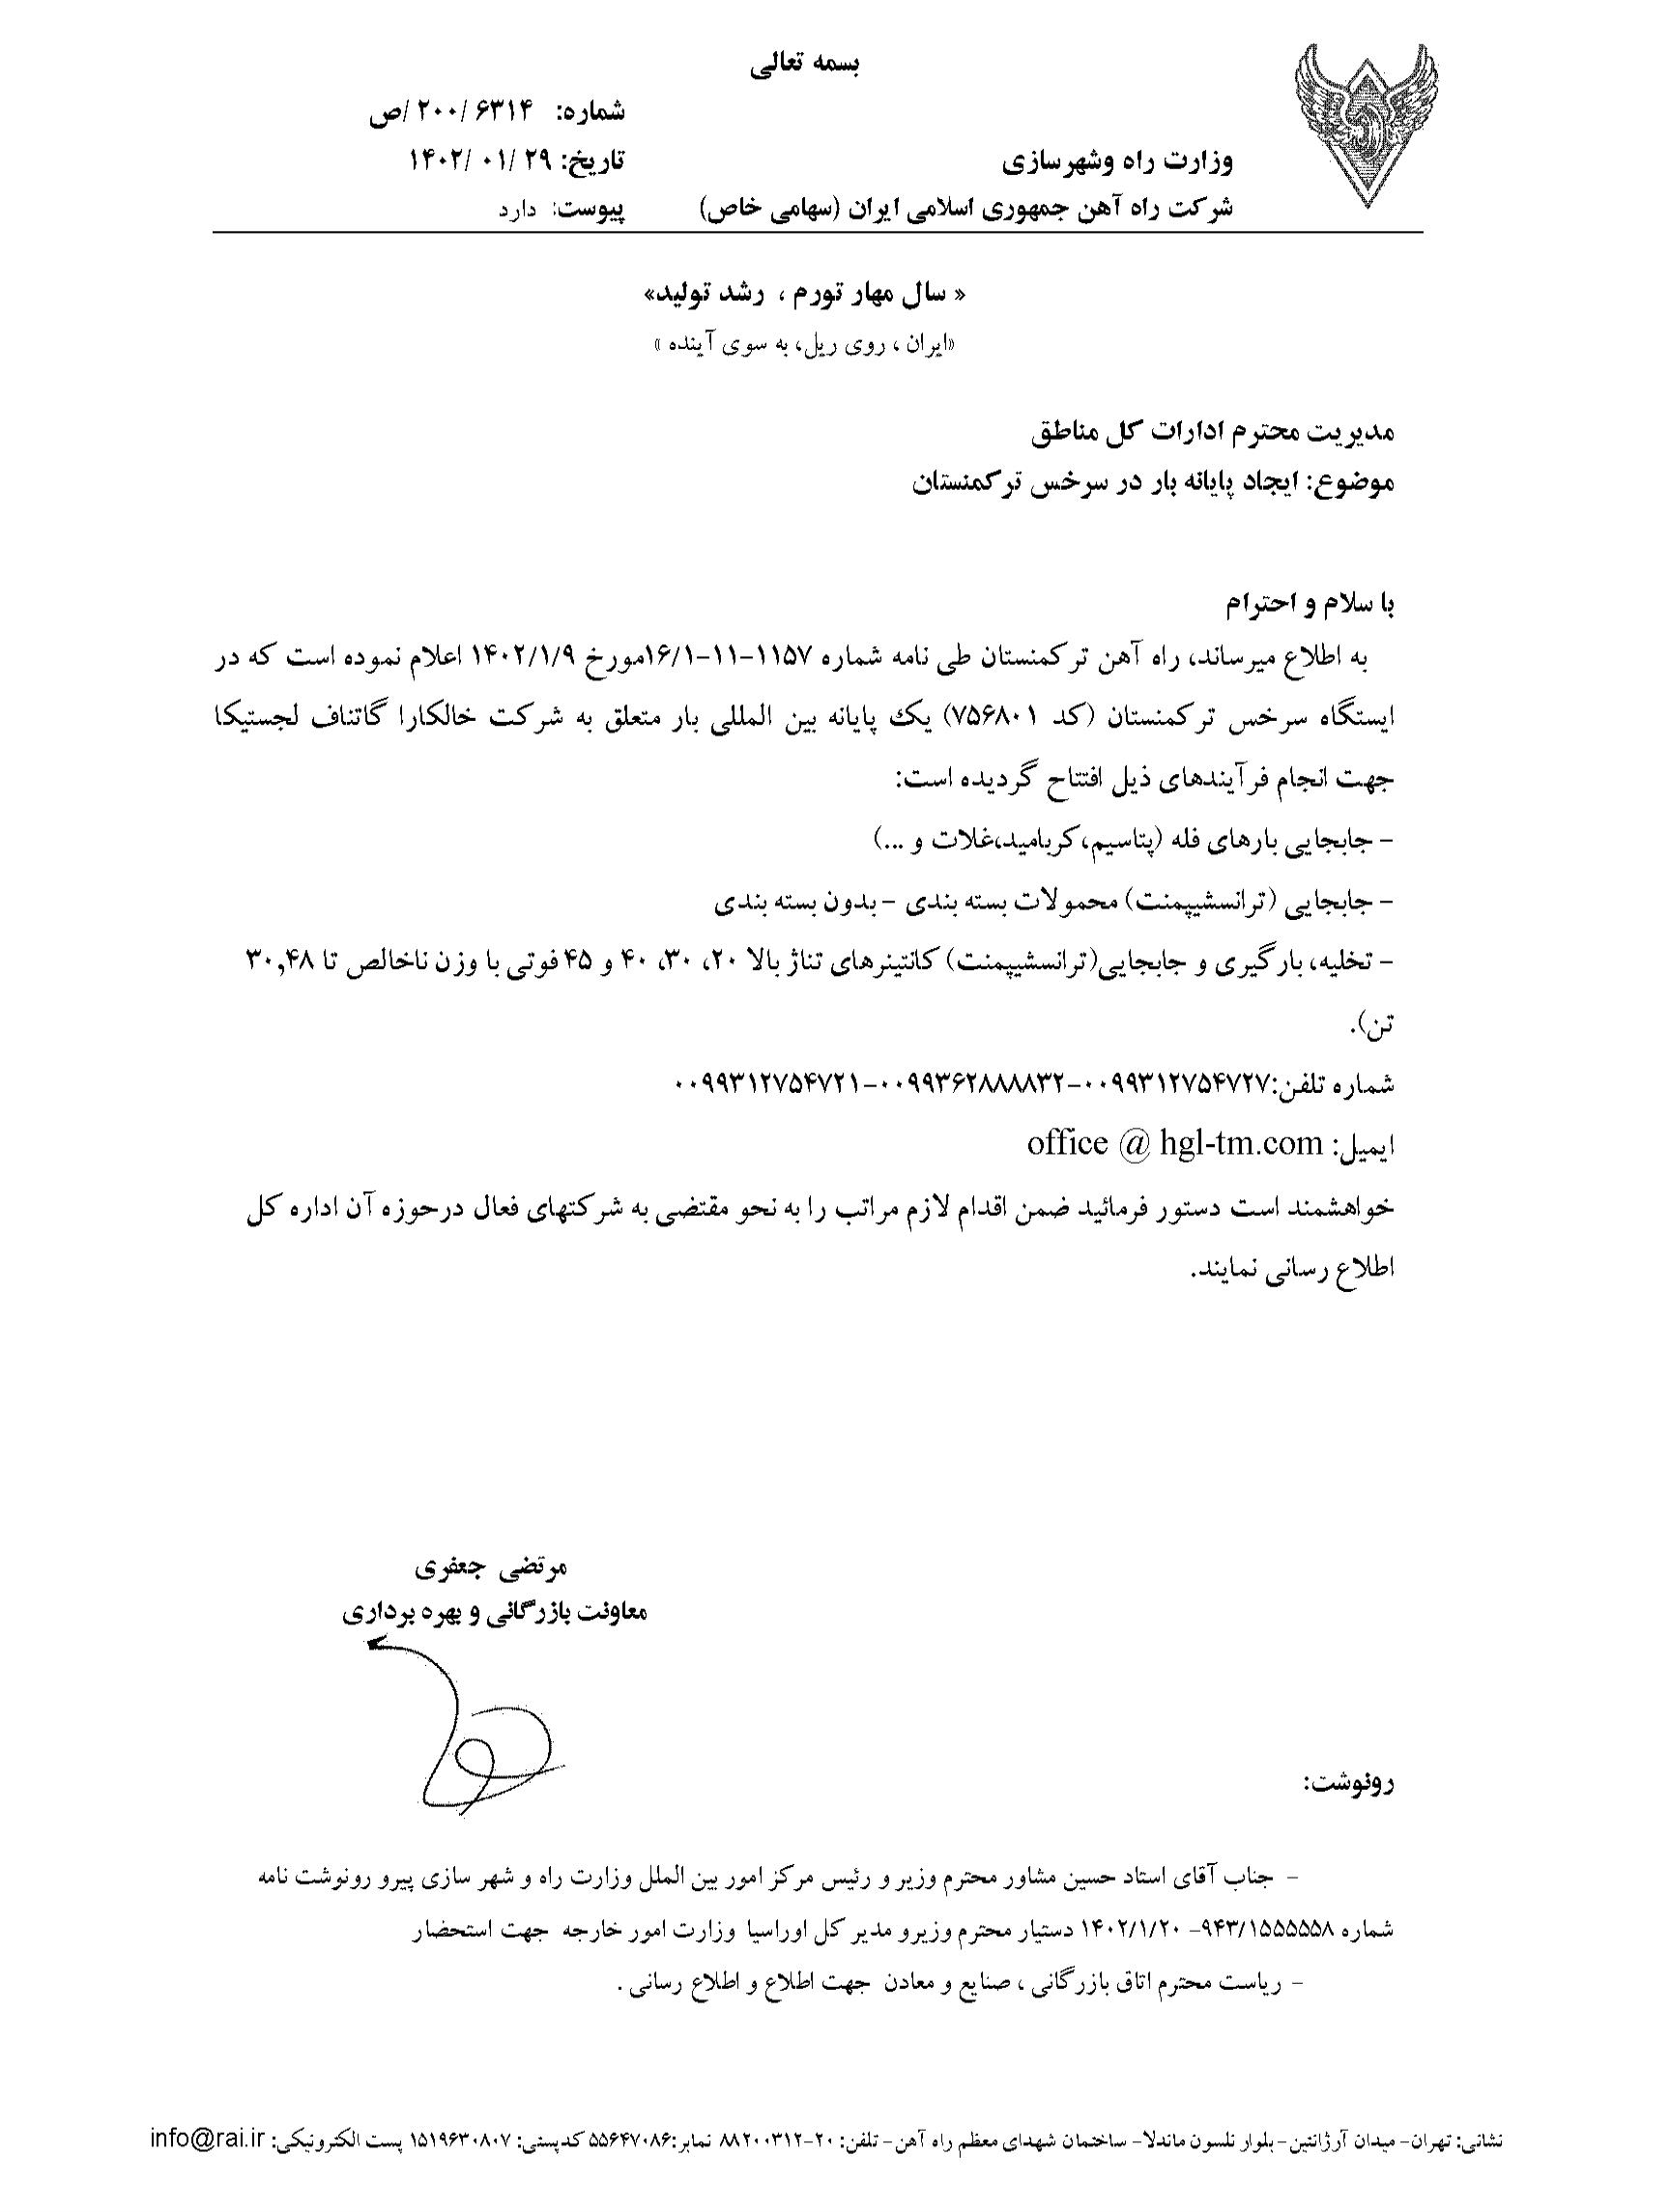 بسمه تعالی
شماره: ۶۳۱۴ /۲۰۰ /ص
وزارت راه وشهرسازی
تاریخ: ۲۹ /۰۱ /۱۴۰۲
شرکت راه آهن جمهوری اسلامی ایران (سهامی خاص)
پیوست: دارد
« سال مهار تورم ، رشد تولید»
«ایران ، روی ریل، به سوی آینده »
مدیریت محترم ادارات کل مناطق
موضوع: ایجاد پایانه بار در سرخس ترکمنستان
با سلام و احترام
به اطلاع میرساند، راه آهن ترکمنستان طی نامه شماره ۱۱۵۷-۱۱-۱۶/۱مورخ ۱۴۰۲/۱/۹ اعلام نموده است که در
ایستگاه سرخس ترکمنستان (کد ۷۵۶۸۰۱) یک پایانه بین المللی بار متعلق به شرکت خالکارا گاتناف لجستیکا
جهت انجام فرآیندهای ذیل افتتاح گردیده است:
- جابجایی بارهای فله (پتاسیم،کربامید،غلات و ...)
- جابجایی (ترانسشیپمنت) محمولات بسته بندی - بدون بسته بندی
- تخلیه، بارگیری و جابجایی(ترانسشیپمنت) کانتینرهای تناژ بالا ۲۰، ۳۰، ۴۰ و ۴۵ فوتی با وزن ناخالص تا ۳۰,۴۸
تن).
شماره تلفن:۰۰۹۹۳۱۲۷۵۴۷۲۷-۰۰۹۹۳۶۲۸۸۸۸۳۲-۰۰۹۹۳۱۲۷۵۴۷۲۱
ایمیل: office @ hgl-tm.com
خواهشمند است دستور فرمائید ضمن اقدام لازم مراتب را به نحو مقتضی به شرکتهای فعال درحوزه آن اداره کل
اطلاع رسانی نمایند.
مرتضی جعفری
معاونت بازرگانی و بهره برداری
رونوشت:
- جناب آقای استاد حسین مشاور محترم وزیر و رئیس مرکز امور بین الملل وزارت راه و شهر سازی پیرو رونوشت نامه
شماره ۹۴۳/۱۵۵۵۵۵۸- ۱۴۰۲/۱/۲۰ دستیار محترم وزیرو مدیر کل اوراسیا وزارت امور خارجه جهت استحضار
- ریاست محترم اتاق بازرگانی ، صنایع و معادن جهت اطلاع و اطلاع رسانی .
نشانی: تهران- میدان آرژانتین- بلوار نلسون ماندلا- ساختمان شهدای معظم راه آهن- تلفن: ۲۰-۸۸۲۰۰۳۱۲ نمابر:۵۵۶۴۷۰۸۶ کدپستی: ۱۵۱۹۶۳۰۸۰۷ پست الکترونیکی: info@rai.ir